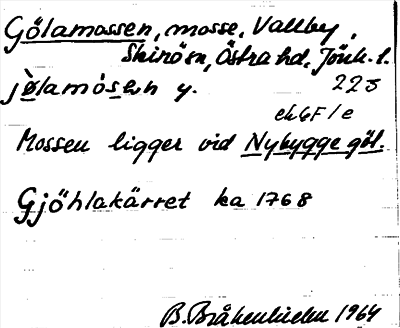 Gölamossen, mosse, Vallby,
Skirö sn, Östra hd, Jönk. l.
jø̀lamósen y. 225
ek 6F1e
Mossen ligger vid Nybygge göl.
Gjöhlakärret ka 1768
1964